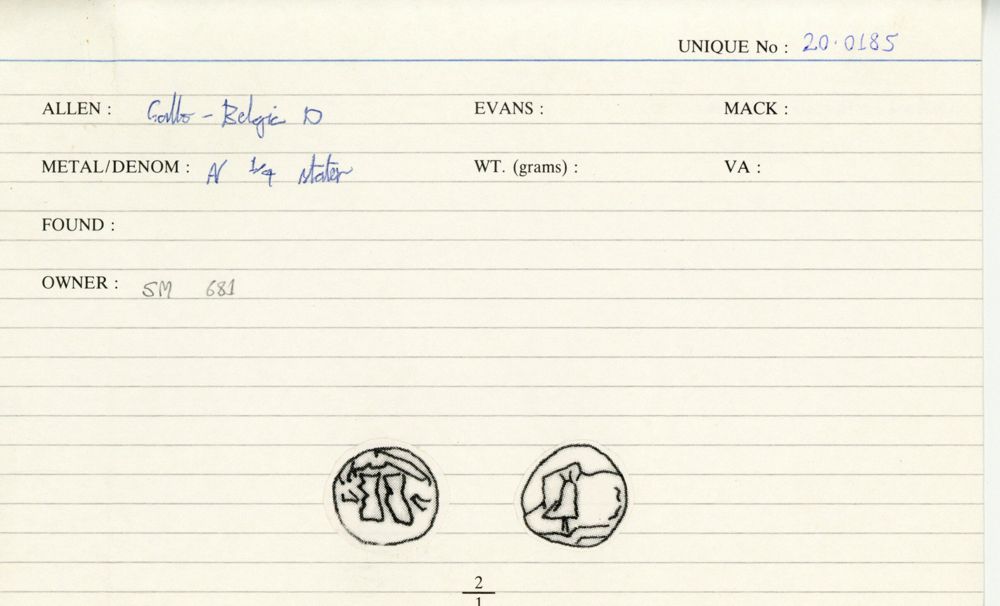 UNIQUE No : 20.0185
ALLEN : Gallo-Belgic D EVANS : MACK :
METAL/DENOM : AV 1/4 stater WT. (grams) : VA :
FOUND :
OWNER : SM 681
2
1